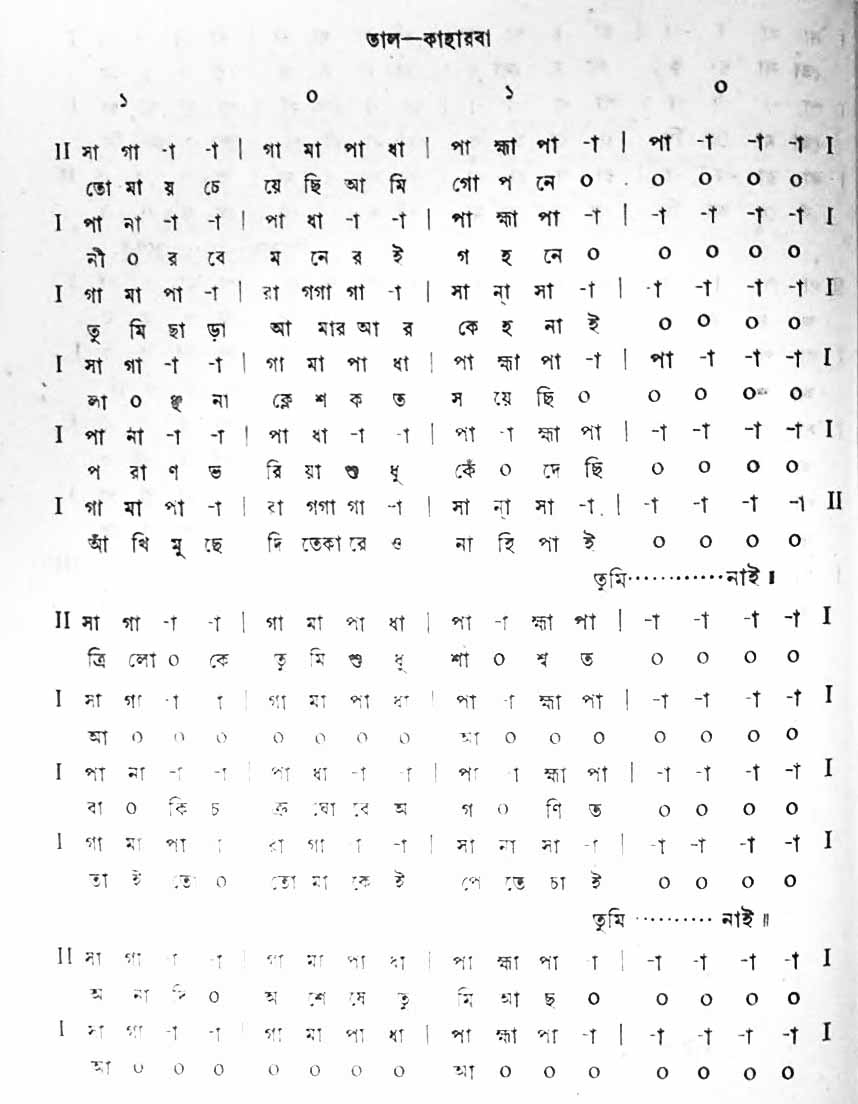 তাল—কাহারবা
১ ০ ১ ০
II সা গা -া -া | গা মা পা ধা | পা হ্মা পা -া | পা -া -া -া I
তো মা য় চে য়ে ছি আ মি গো প নে ০ ০ ০ ০ ০
I পা না -া -া | পা ধা -া -া | পা হ্মা পা -া | -া -া -া -া I
নী ০ র বে ম নে র ই গ হ নে ০ ০ ০ ০ ০
I গা মা পা -া | রা গগা গা -া | সা ন্া সা -া | -া -া -া -া I
তু মি ছা ড়া আ মার আ র কে হ না ই ০ ০ ০ ০
I সা গা -া -া | গা মা পা ধা | পা হ্মা পা -া | পা -া -া -া I
লা ০ ঞ্ছ না ক্লে শ ক ত স য়ে ছি ০ ০ ০ ০ ০
I পা না -া -া | পা ধা -া -া | পা -া হ্মা পা | -া -া -া -া I
প রা ণ ভ রি য়া শু ধু কেঁ ০ দে ছি ০ ০ ০ ০
I গা মা পা -া | রা গগা গা -া | সা ন্া সা -া | -া -া -া -া II
আঁ খি মু ছে দি তেকা রে ও না হি পা ই ০ ০ ০ ০
তুমি············নাই।
II সা গা -া -া | গা মা পা ধা | পা -া হ্মা পা | -া -া -া -া I
ত্রি লো ০ কে তু মি শু ধু শা ০ শ্ব ত ০ ০ ০ ০
I সা গা -া া | গা মা পা ধা | পা -া হ্মা পা | -া -া -া -া I
আ ০ ০ ০ ০ ০ ০ ০ আ ০ ০ ০ ০ ০ ০ ০
I পা না -া -া | পা ধা -া -া | পা া হ্মা পা | -া -া -া -া I
বা ০ কি চ ক্র ঘো রে অ গ ০ ণি ত ০ ০ ০ ০
I গা মা পা া | রা গা া -া | সা না সা -া | -া -া -া -া I
তা ই তো ০ তো মা কে ই পে তে চা ই ০ ০ ০ ০
তুমি ·········· নাই॥
II সা গা া -া | গা মা পা ধা | পা হ্মা পা া | -া -া -া -া I
অ না দি ০ অ শে ষে তু মি আ ছ ০ ০ ০ ০ ০
I সা গা -া -া | গা মা পা ধা | পা হ্মা পা -া | -া -া -া -া I
আ ০ ০ ০ ০ ০ ০ ০ আ ০ ০ ০ ০ ০ ০ ০